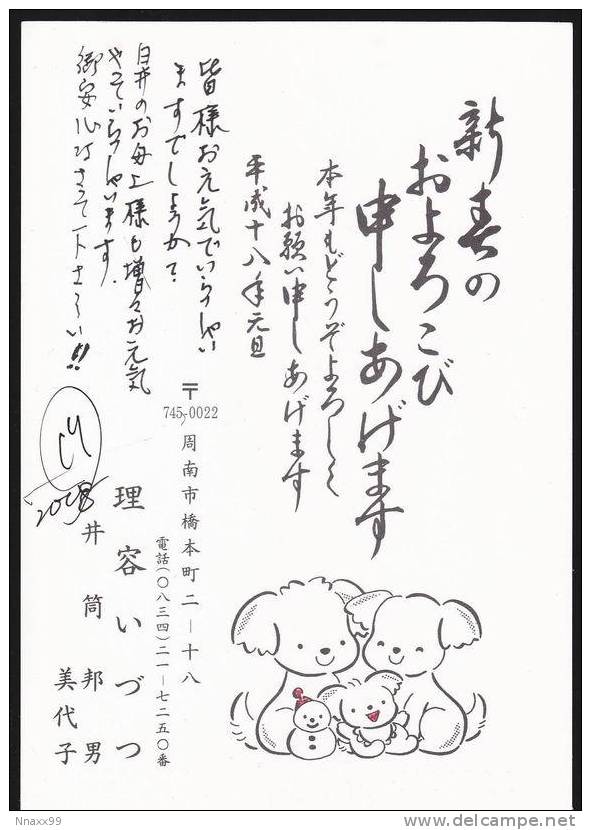 新春の
およろこび
申しあげます
本年もどうぞよろしく
お願い申しあげます
平成十八年元旦
皆様お元気でいらっしゃい
ますでしょうか?
臼井のお母上様も増々お元気
でいらっしゃいます。
御安心なさって下さーい!!
〒
745-0022
周南市橋本町二ー十八
電話(〇八三四)二一ー七二五〇番
理容いづつ
井筒邦男
美代子
Nnaxx99
www.delcampe.net